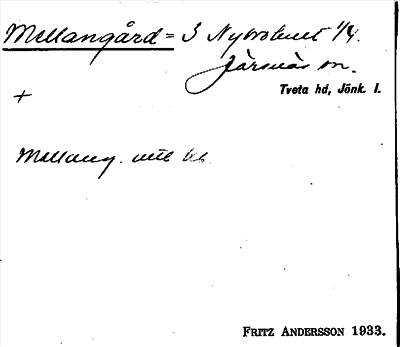 Mellangård = 3 Nybrotult 1/4.
Järsnäs sn.
Tveta hd, Jönk. l.
+
Mellang. utt
FRITZ ANDERSSON 1933.